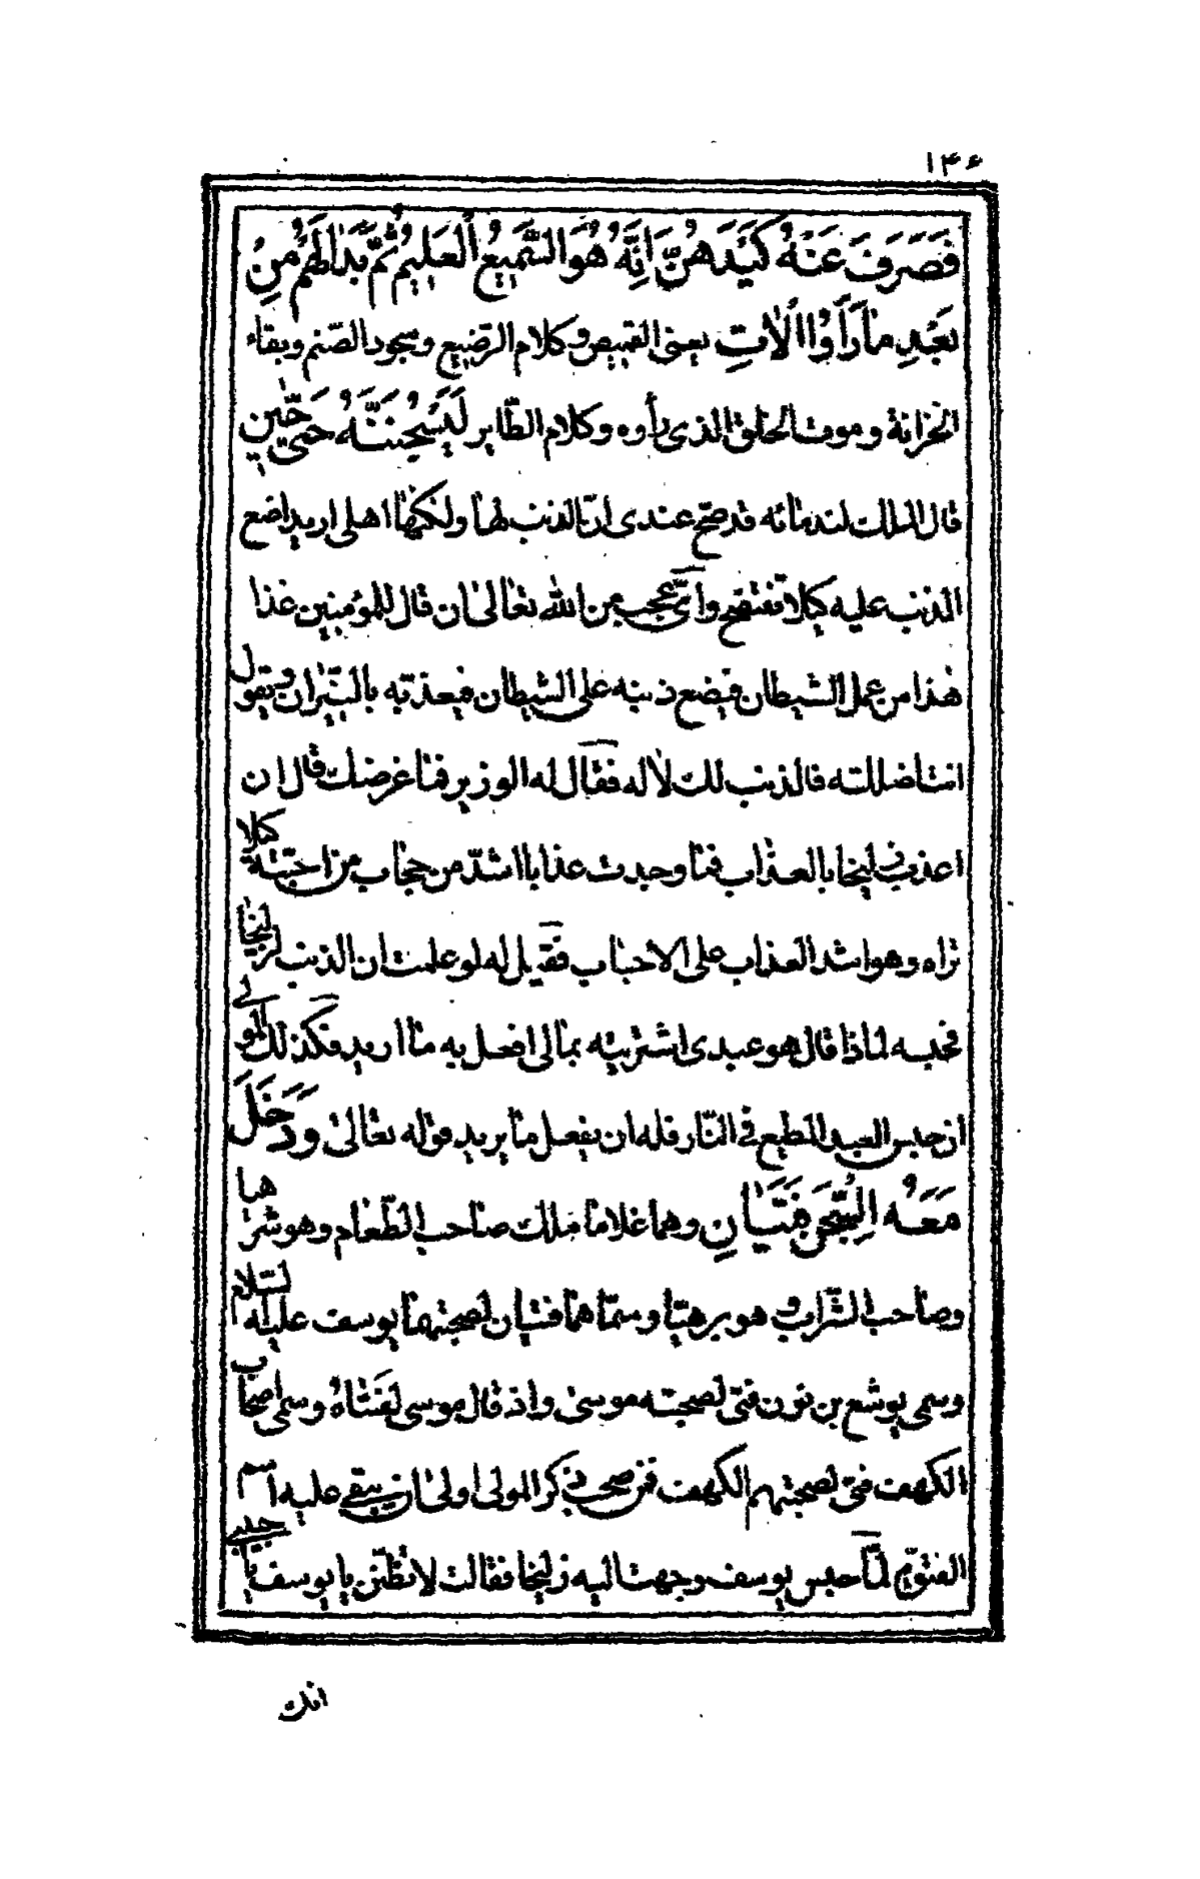 ١٤٦
فَصَرَفَ عَنْهُ كَيْدَهُنَّ اِنَّهُ هُوَ السَّمِيعُ الْعَلِيمُ ثُمَّ بَدَالَهُمْ مِنْ
بَعْدِ مَا رَأَوُا الْاٰتِ يعنى القميص وكلام الرّضيع وسجود الصّنم وبقاء
الخزانة وموت الخلق الذى رأوه وكلام الطّاير لَيَسْجُنَنَّهُ حَتّٰى حِينٍ
قال الملك لندمائه قد صحّ عندى انّ الذنب لها ولكنّها اهلى اريد اضع
الذنب عليه كيلا تفتضح واىّ عجب من الله تعالى ان قال للمؤمنين غذا
هٰذا من عمل الشيطان فيضع ذنبه على الشيطان فيعذّبه بالنّيران ويقول
انت اضللته فالذنب لك لا له فقال له الوزير فما غرضك قال ان
اعذب زليخا بالعذاب فما وجدت عذابا اشدّ من حجاب من احبّته كيلا
تراه وهو اشد العذاب على الاحباب فقيل له لو علمت ان الذنب لزليخا
فحبسه لماذا قال هو عبدى اشتريته بمالى افعل به ما اريد فكذلك المولى
ان حبس العبد المطيع فى النّار فله ان يفعل ما يريد قوله تعالى وَدَخَلَ
مَعَهُ السِّجْنَ فَتَيَانِ وهما غلاما ملك صاحب الطّعام وهو شرهيا
وصاحب الشّراب وهو برهيّا وسمّاهما فتيان لصحبتهما يوسف عليه السّلام
وسمى يوشع بن نون فتى لصحبته موسى واذ قال موسى لِفَتٰاهُ وسمى اصحاب
الكهف فتى لصحبتهم الكهف فمن صحب ذكر المولى اولى ان يبقى عليه اسم
الفتوّة لمّا حبس يوسف وجهت اليه زليخا فقالت لا تظنّن يا يوسف يا حبيبى
انك